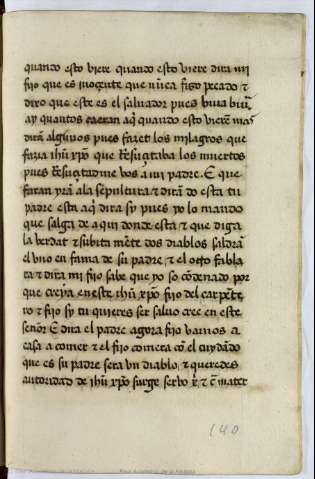 quando esto viere quando esto viere dira mi
fijo que es inoçente que nũca fizo pecado τ
dixo que este es el saluador pues biua biua
ay quantos caeran aq̃ quando esto vierẽ mas
dirã algunos pues fazet los milagros que
fazia ihũ xp̃o que rresuçitaba los muertos
pues rresuçitadme vos a mi padre. E que
faran yrã ala sepultura τ dirã do esta tu
padre esta aq̃ dira sy pues yo lo mando
que salga de aqui donde esta τ que diga
la berdat τ subita mẽte dos diablos saldrã
el vno en fama de su padre τ el otro fabla
ra τ dira mi fijo sabe que yo so cõdenado por
que creya en este ihũ xp̃o fijo del carpẽte
ro τ fijo sy tu quieres ser saluo cree en este
señor E dira el padre agora fijo vamos a
casa a comer τ el fijo comera cõ el cuydãdo
que es su padre sera vn diablo τ queredes
autoridad de ihũ xp̃o surge
140